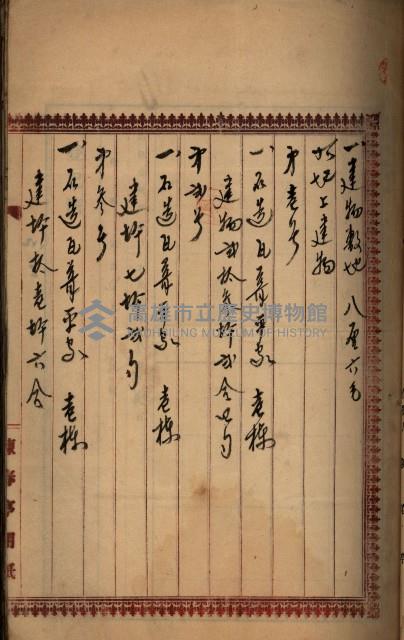 一、建物敷地 八厘六毛
此地上建物
第壱号
一、石造瓦葺平家 壱棟
建物弐拾参坪弐合七勺
第弐号
一、石造瓦葺平家 壱棟
建坪七坪弐勺
第参号
一、石造瓦葺平家 壱棟
建坪拾壱坪六合
用紙
高雄市立歷史博物館
KAOHSIUNG MUSEUM OF HISTORY